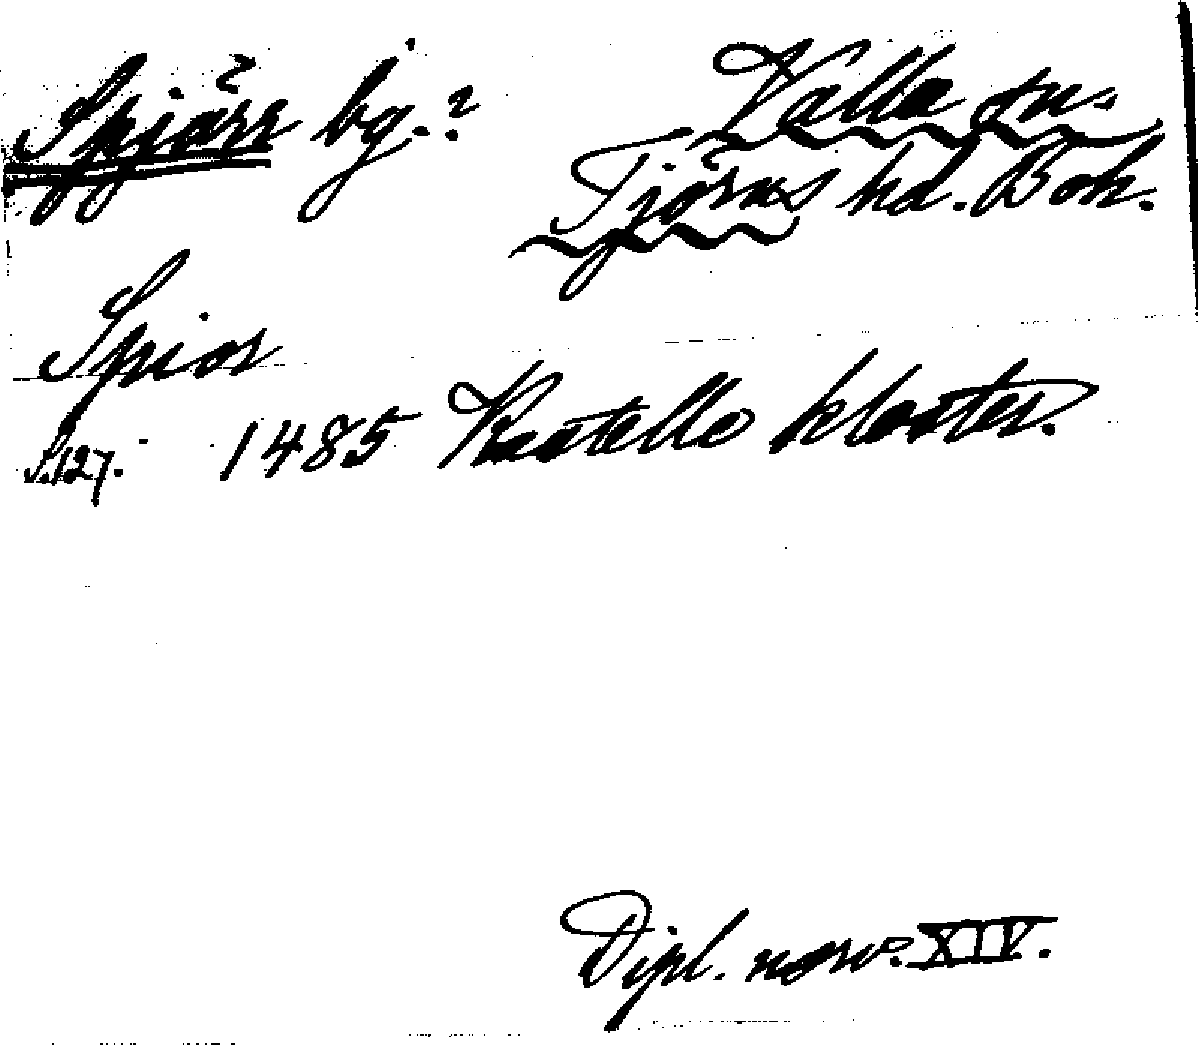 Spjärr bg.? Valla sn.
Tjörns hd. Boh.
Spior
S.127. 1485 Kastelle kloster.
Dipl. norv. XIV.